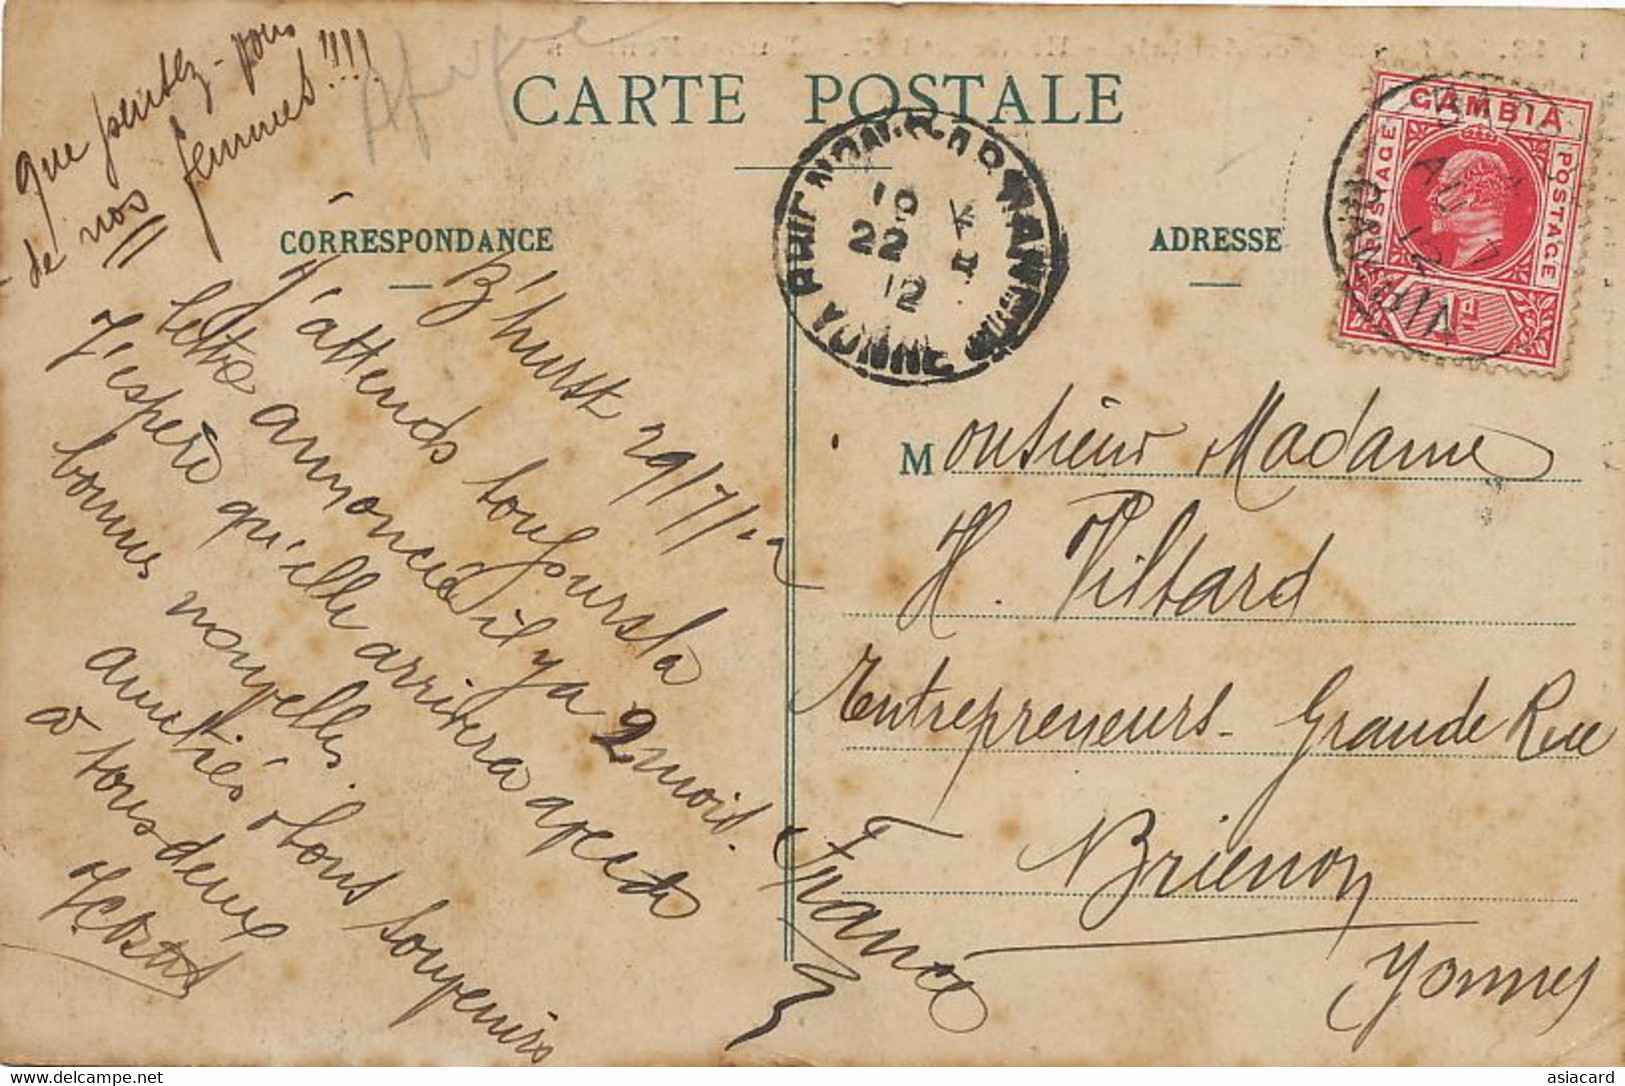 que pensez-vous
de nos femmes!!!!
Afrique
CARTE POSTALE
CORRESPONDANCE
ADRESSE
GAMBIA
POSTAGE
POSTAGE
1D
BATHURST
AU 7
12
GAMBIA
BRIENON-S-ARMANÇON
19
22 8
12
YONNE
B'hurst 29/7/12
J'attends toujours la
lettre annoncée il y a 2 mois.
J'espère qu'elle arrivera avec de
bonnes nouvelles.
Amitiés & bons souvenirs
à tous deux
Monsieur Madame
H. Villard
Entrepreneurs - Grande Rue
Brienon
Yonne
France
asiacard